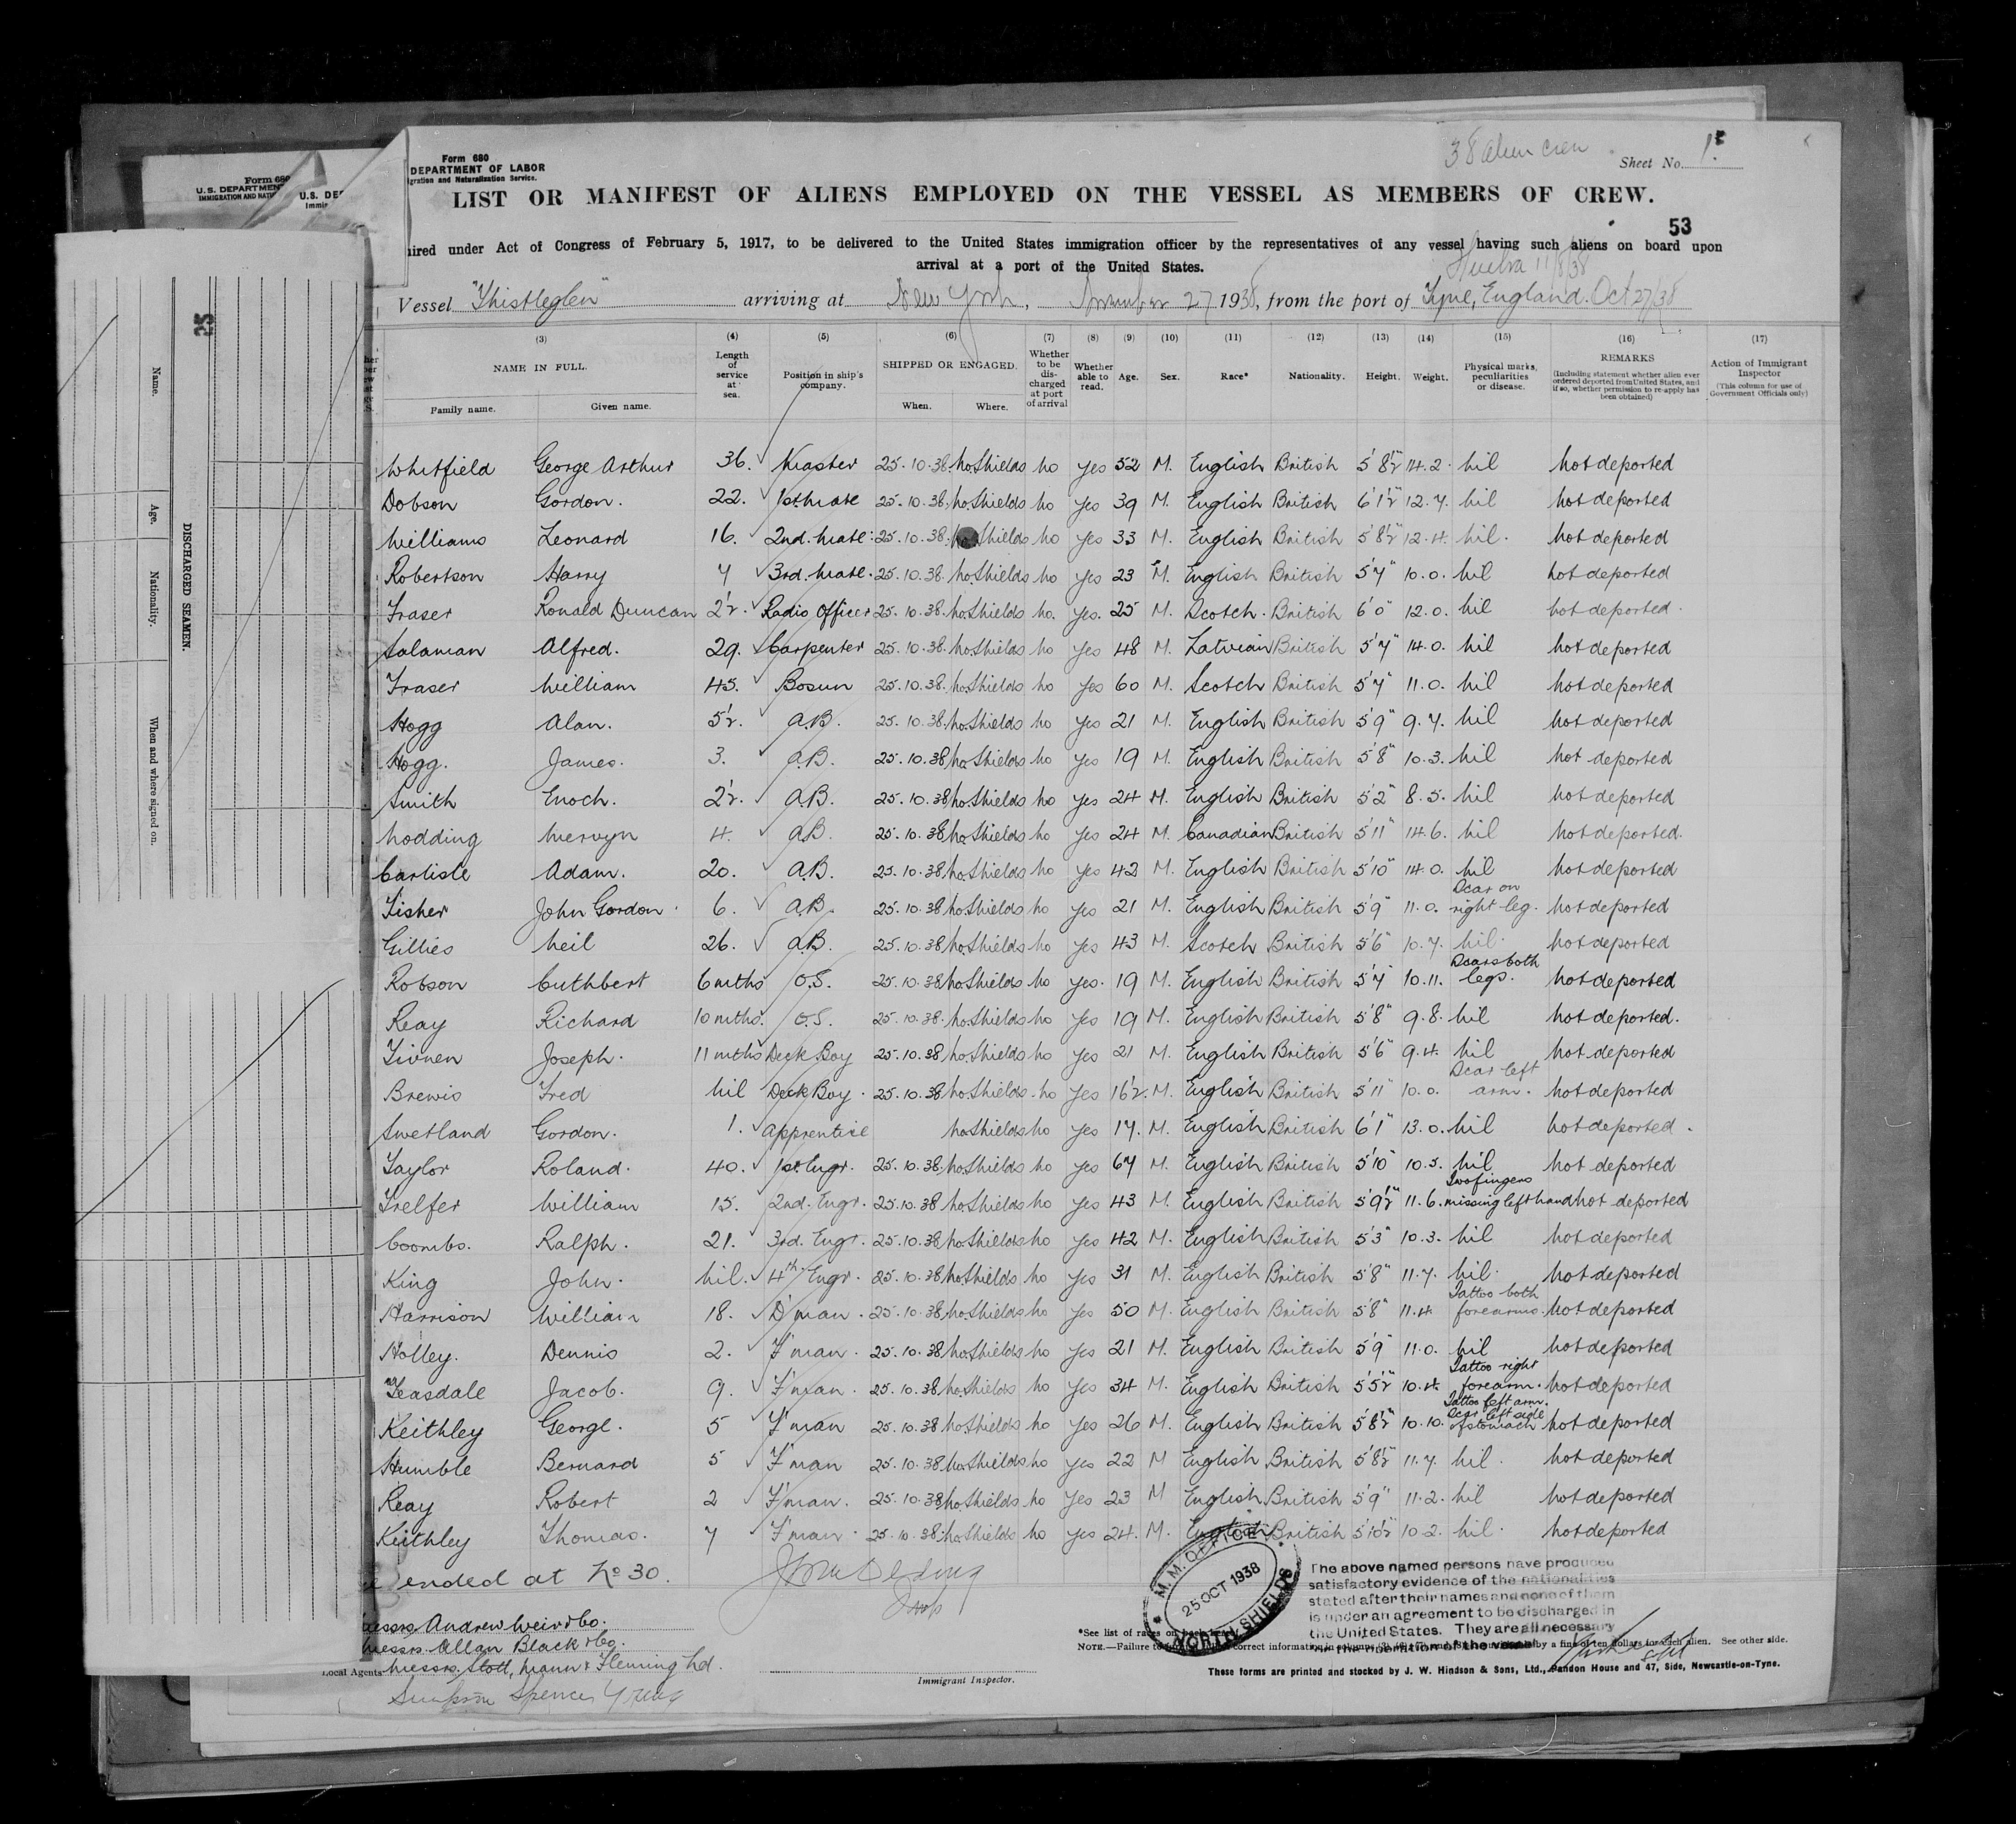 38 alien crew
Sheet No. 1.
Form 680
U.S. DEPARTMENT
IMMIGRATION AND NATU
U.S. DE
Immig
Form 680
DEPARTMENT OF LABOR
igration and Naturalization Service.
LIST OR MANIFEST OF ALIENS EMPLOYED ON THE VESSEL AS MEMBERS OF CREW.
53
uired under Act of Congress of February 5, 1917, to be delivered to the United States immigration officer by the representatives of any vessel having such aliens on board upon
arrival at a port of the United States.
Huelva 11/8/38
Vessel "Thistleglen" arriving at New York, November 27 1938, from the port of Tyne, England. Oct 27/38
(3) (4) (5) (6) (7) (8) (9) (10) (11) (12) (13) (14) (15) (16) (17)
NAME IN FULL. Family name. Given name.
Length of service at sea.
Position in ship's company.
SHIPPED OR ENGAGED. When. Where.
Whether to be discharged at port of arrival
Whether able to read.
Age. Sex. Race* Nationality. Height. Weight.
Physical marks, peculiarities or disease.
REMARKS (Including statement whether alien ever ordered deported from United States, and if so, whether permission to re-apply has been obtained)
Action of Immigrant Inspector (This column for use of Government Officials only)
Whitfield George Arthur 36. Master 25.10.38 No.Shields No Yes 52 M. English British 5'8½" 14.2. Nil Not deported
Dobson Gordon. 22. 1st Mate 25.10.38. No.Shields No Yes 39 M. English British 6'1½" 12.7. Nil Not deported
Williams Leonard 16. 2nd. Mate: 25.10.38. No.Shields No Yes 33 M. English British 5'8½" 12.4. Nil. Not deported
Robertson Harry 7 3rd. Mate. 25.10.38. No.Shields No Yes 23 M. English British 5'7" 10.0. Nil Not deported
Fraser Ronald Duncan 2½. Radio Officer 25.10.38. No.Shields No. Yes. 25 M. Scotch. British 6'0" 12.0. Nil Not deported.
Salaman Alfred. 29. Carpenter 25.10.38. No.Shields No Yes 48 M. Latvian British 5'7" 14.0. Nil Not deported
Fraser William 45. Bosun 25.10.38. No.Shields No Yes 60 M. Scotch British 5'7" 11.0. Nil Not deported
Hogg Alan. 5½. A.B. 25.10.38. No.Shields No Yes 21 M. English British 5'9" 9.7. Nil Not deported
Hogg. James. 3. A.B. 25.10.38 No.Shields No Yes 19 M. English British 5'8" 10.3. Nil Not deported
Smith Enoch. 2½. A.B. 25.10.38 No.Shields No Yes 24 M. English British 5'2" 8.5. Nil Not deported
Nodding Mervyn 4. A.B. 25.10.38 No.Shields No Yes 24 M. Canadian British 5'11" 14.6. Nil Not deported.
Carlisle Adam. 20. A.B. 25.10.38 No.Shields No Yes 42 M. English British 5'10" 14.0. Nil Not deported
Fisher John Gordon. 6. A.B. 25.10.38 No.Shields No Yes 21 M. English British 5'9" 11.0. Scar on right leg. Not deported
Gillies Neil 26. A.B. 25.10.38 No.Shields No Yes 43 M. Scotch British 5'6" 10.7. Nil. Not deported
Robson Cuthbert 6 mths O.S. 25.10.38 No.Shields No Yes. 19 M. English British 5'7" 10.11. Scars both legs. Not deported
Reay Richard 10 mths. O.S. 25.10.38. No.Shields No Yes 19 M. English British 5'8" 9.8. Nil Not deported.
Tivnen Joseph. 11 mths Deck Boy 25.10.38 No.Shields No Yes 21 M. English British 5'6" 9.4. Nil Not deported
Brewis Fred Nil Deck Boy. 25.10.38 No.Shields. No Yes 16½. M. English British 5'11" 10.0. Scar left arm. Not deported
Swetland Gordon. 1. Apprentice No.Shields No Yes 17. M. English British 6'1" 13.0. Nil Not deported.
Taylor Roland. 40. 1st. Engr. 25.10.38 No.Shields No Yes 67 M. English British 5'10" 10.5. Nil Not deported
Trelfer William 15. 2nd. Engr. 25.10.38 No.Shields No Yes 43 M. English British 5'9½" 11.6. Two fingers missing left hand Not deported
Coombs. Ralph. 21. 3rd. Engr. 25.10.38 No.Shields No Yes 42 M. English British 5'3" 10.3. Nil Not deported
King John. Nil. 4th Engr. 25.10.38 No.Shields No Yes 31 M. English British 5'8" 11.7. Nil. Not deported
Harrison William 18. D'man. 25.10.38 No.Shields No Yes 50 M. English British 5'8" 11.4 Tattoo both forearms. Not deported
Holley. Dennis 2. F'man. 25.10.38 No.Shields No Yes 21 M. English British 5'9" 11.0. Nil Not deported
Teasdale Jacob. 9. F'man. 25.10.38 No.Shields No Yes 34 M. English British 5'5½" 10.4. Tattoo right forearm. Not deported
Keithley George. 5 F'man 25.10.38 No.Shields No Yes 26 M. English British 5'8½" 10.10. Tattoo left arm. Scar left side of stomach Not deported
Humble Bernard 5 F'man 25.10.38 No.Shields No Yes 22 M English British 5'8½" 11.7. Nil. Not deported
Reay Robert 2 F'man. 25.10.38 No.Shields No Yes 23 M English British 5'9" 11.2. Nil Not deported
Keithley Thomas. 7 F'man. 25.10.38 No.Shields No Yes 24. M. English British 5'10½" 10.2. Nil. Not deported
ended at No 30.
Insp
M. M. OFFICE
25 OCT 1938
NORTH SHIELDS
The above named persons have produced
satisfactory evidence of the nationalities
stated after their names and none of them
is under an agreement to be discharged in
the United States. They are all necessary
for the operation of the vessel
Messrs. Andrew Weir & Co.
Messrs. Allan Black & Co.
Local Agents Messrs. Stott, Mann & Fleming Ltd.
Simpson Spence Young
Immigrant Inspector.
*See list of races on back
NOTE.—Failure to correct information in columns by a fine of ten dollars for each alien. See other side.
These forms are printed and stocked by J. W. Hindson & Sons, Ltd., Pandon House and 47, Side, Newcastle-on-Tyne.
25
DISCHARGED SEAMEN.
Name.
Age.
Nationality.
When and where signed on.